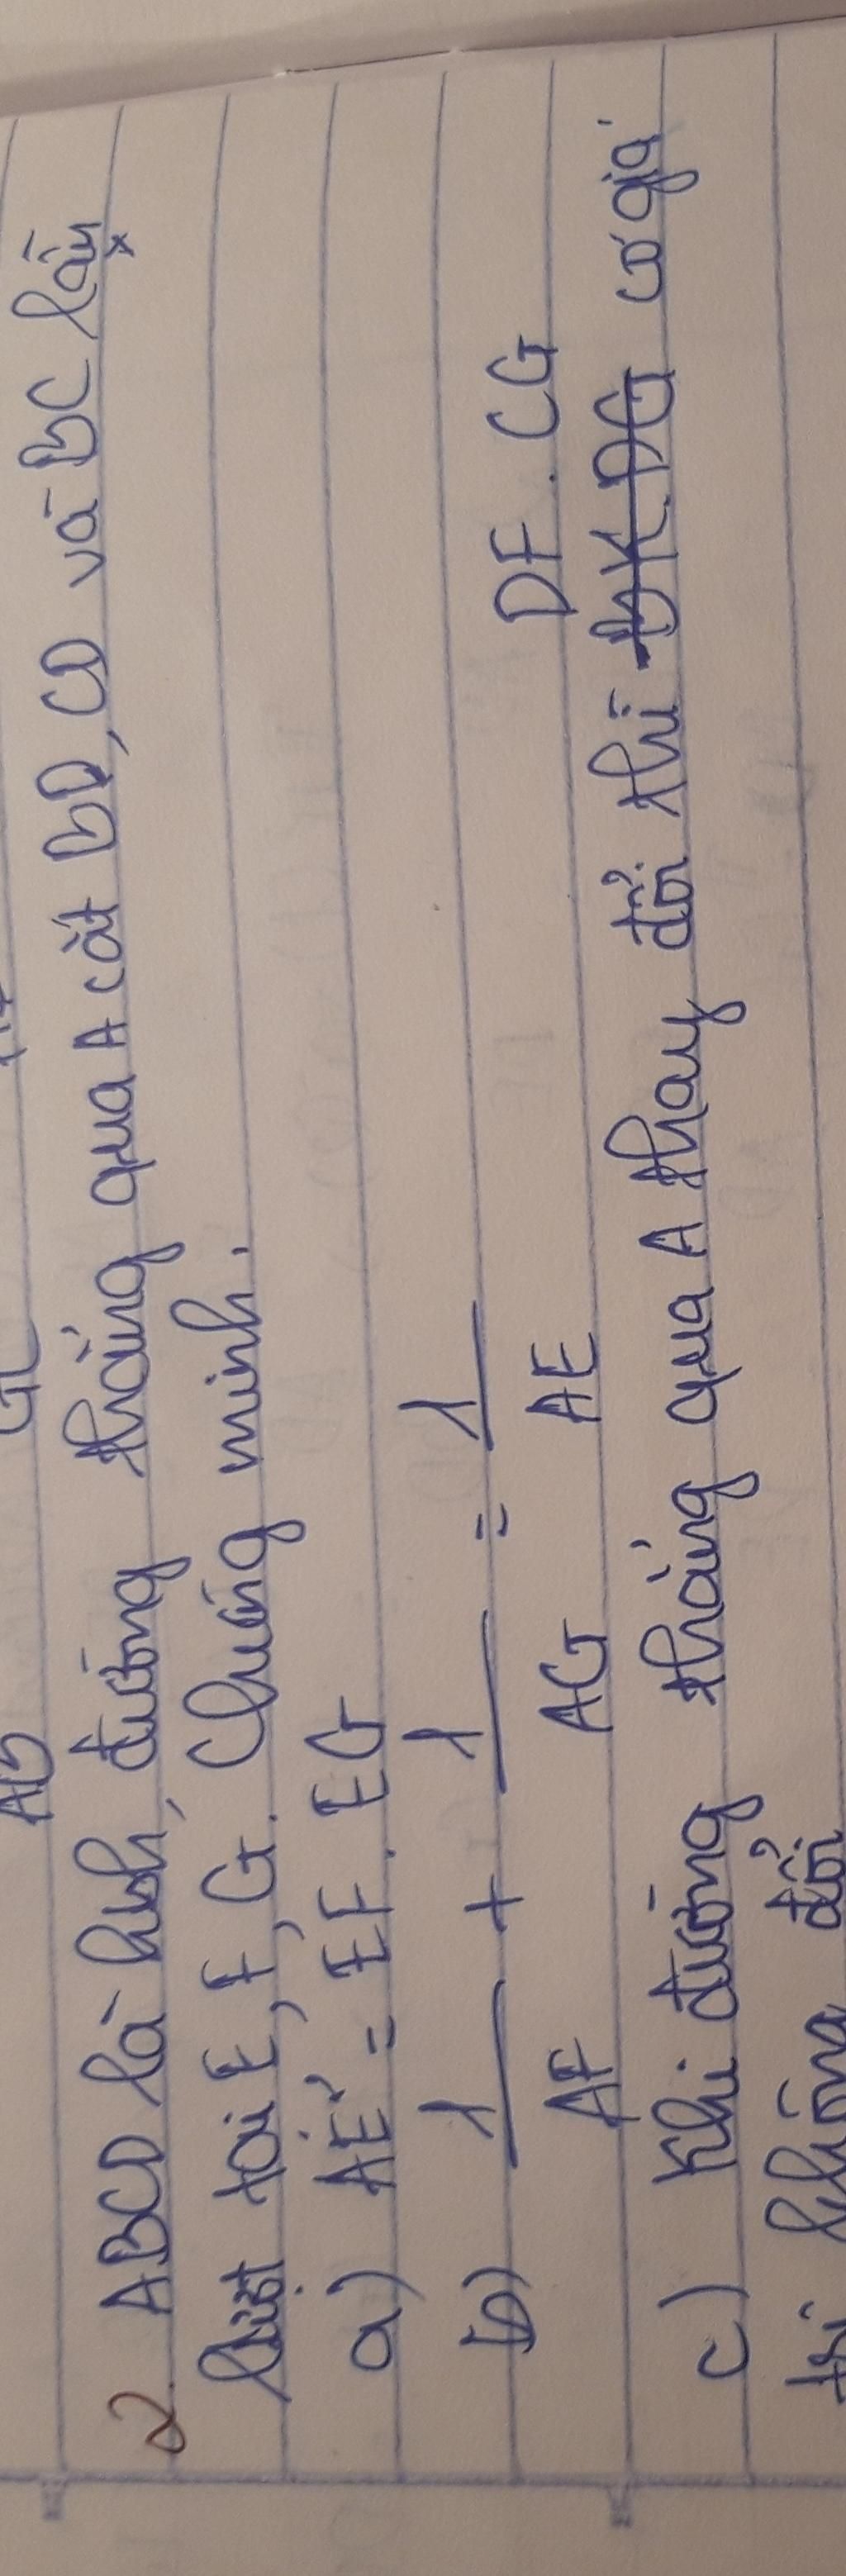 AB GC
2. ABCD là hbh, đường thẳng qua A cắt BD, CD và BC lần
lượt tại E, F, G. Chứng minh.
a) AE² = EF . EG
b) 1/AF + 1/AG = 1/AE
DF . CG
c) Khi đường thẳng qua A thay đổi thì BK.DG có giá
trị không đổi